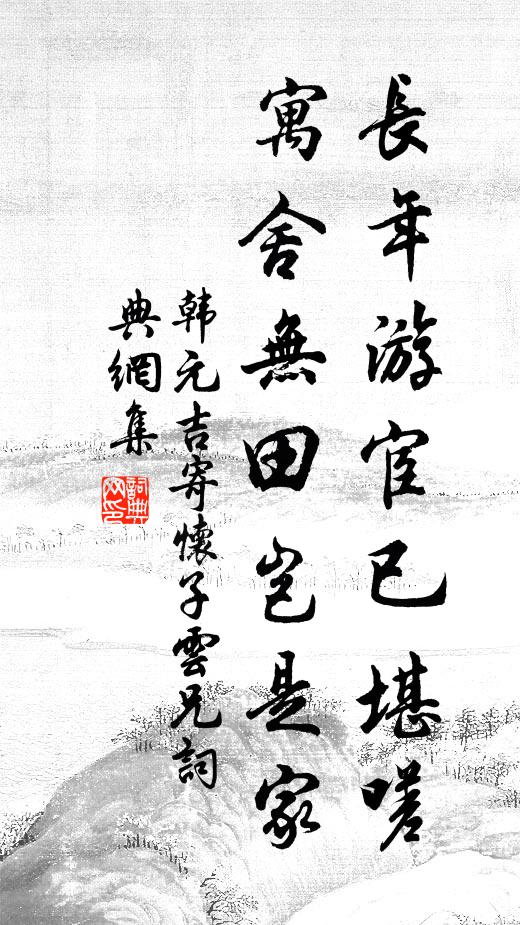 長年游宦已堪嗟
寓舍無田豈是家
韩元吉寄懷子雲兄詞
典網集
詞典网印